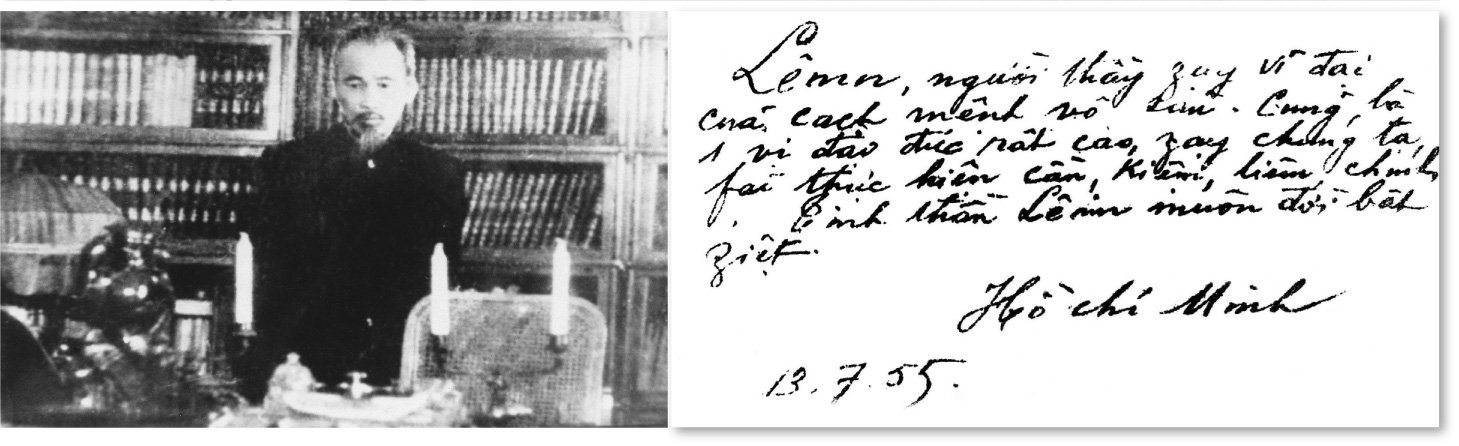 Lênin, người thầy zạy vĩ đại
của cách mệnh vô sản. Cũng là
1 vị đạo đức rất cao, zạy chúng ta,
fải thực hiện cần, kiệm, liêm, chính
. Tinh thần Lênin muôn đời bất
ziệt.
Hồ chí Minh
13.7.55.